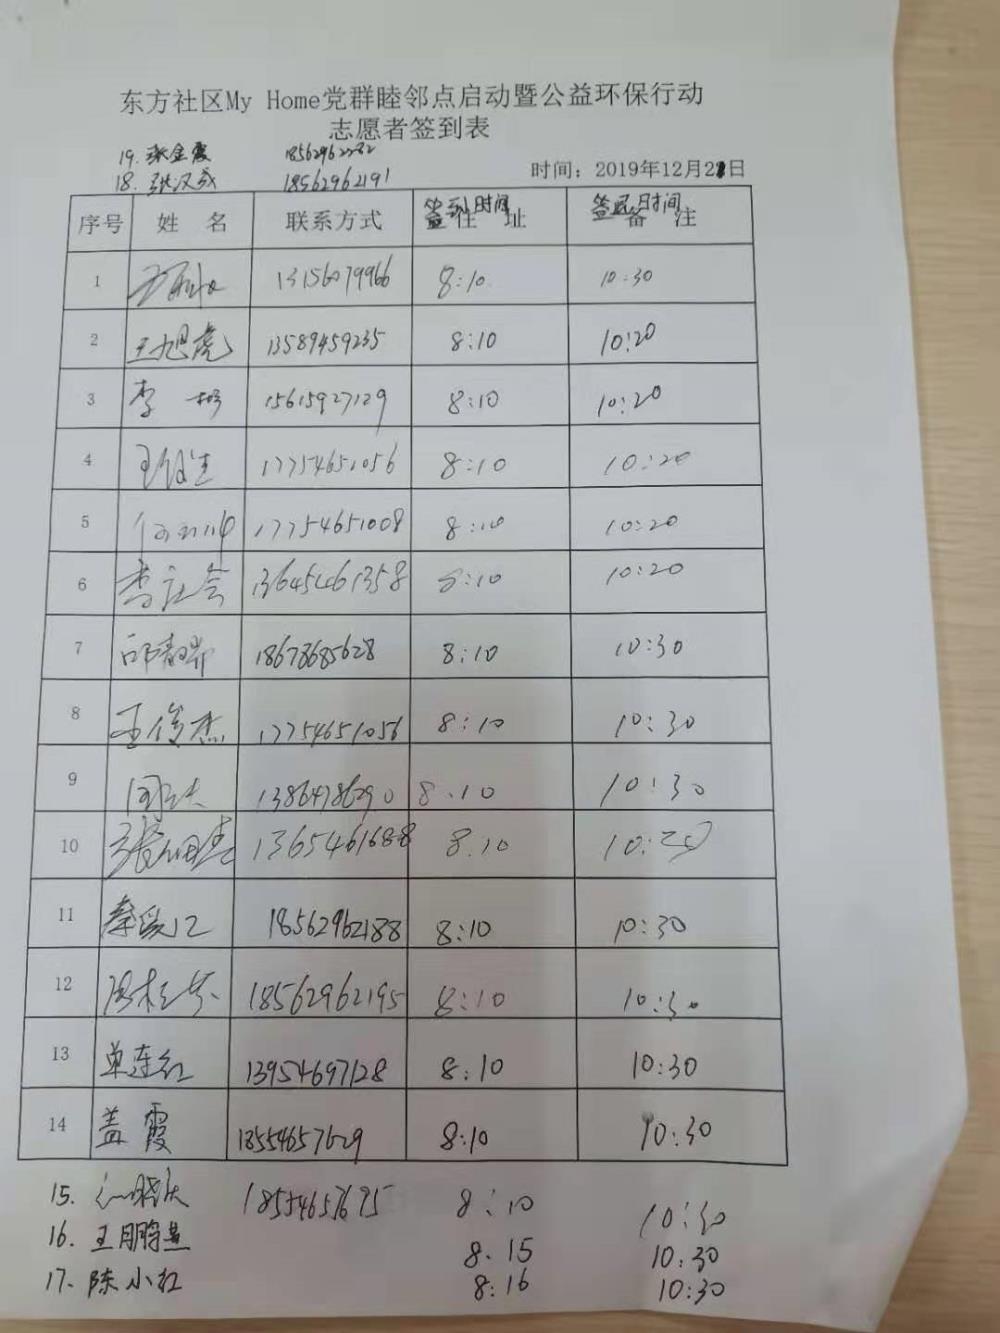 东方社区My Home党群睦邻点启动暨公益环保行动
志愿者签到表
19. 张金霞 18562962282
时间：2019年12月21日
18. 张汉成 18562962191
序号 姓 名 联系方式 签到时间 住 址 签退时间 备 注
1 13156079966 8:10 10:30
2 王旭虎 13589459235 8:10 10:20
3 李 彬 15615927129 8:10 10:20
4 17754651056 8:10 10:20
5 17754651008 8:10 10:20
6 李立会 13645461358 8:10 10:20
7 邱静瑞 18678685628 8:10 10:30
8 王俊杰 17754651056 8:10 10:30
9 13864786290 8.10 10:30
10 13654616888 8.10 10:20
11 秦爱江 18562962188 8:10 10:30
12 18562962195 8:10 10:30
13 单连红 13954697128 8:10 10:30
14 盖 霞 18554657629 8:10 10:30
15. 18554657675 8:10 10:30
16. 王鹏 8.15 10:30
17. 陈小红 8:16 10:30